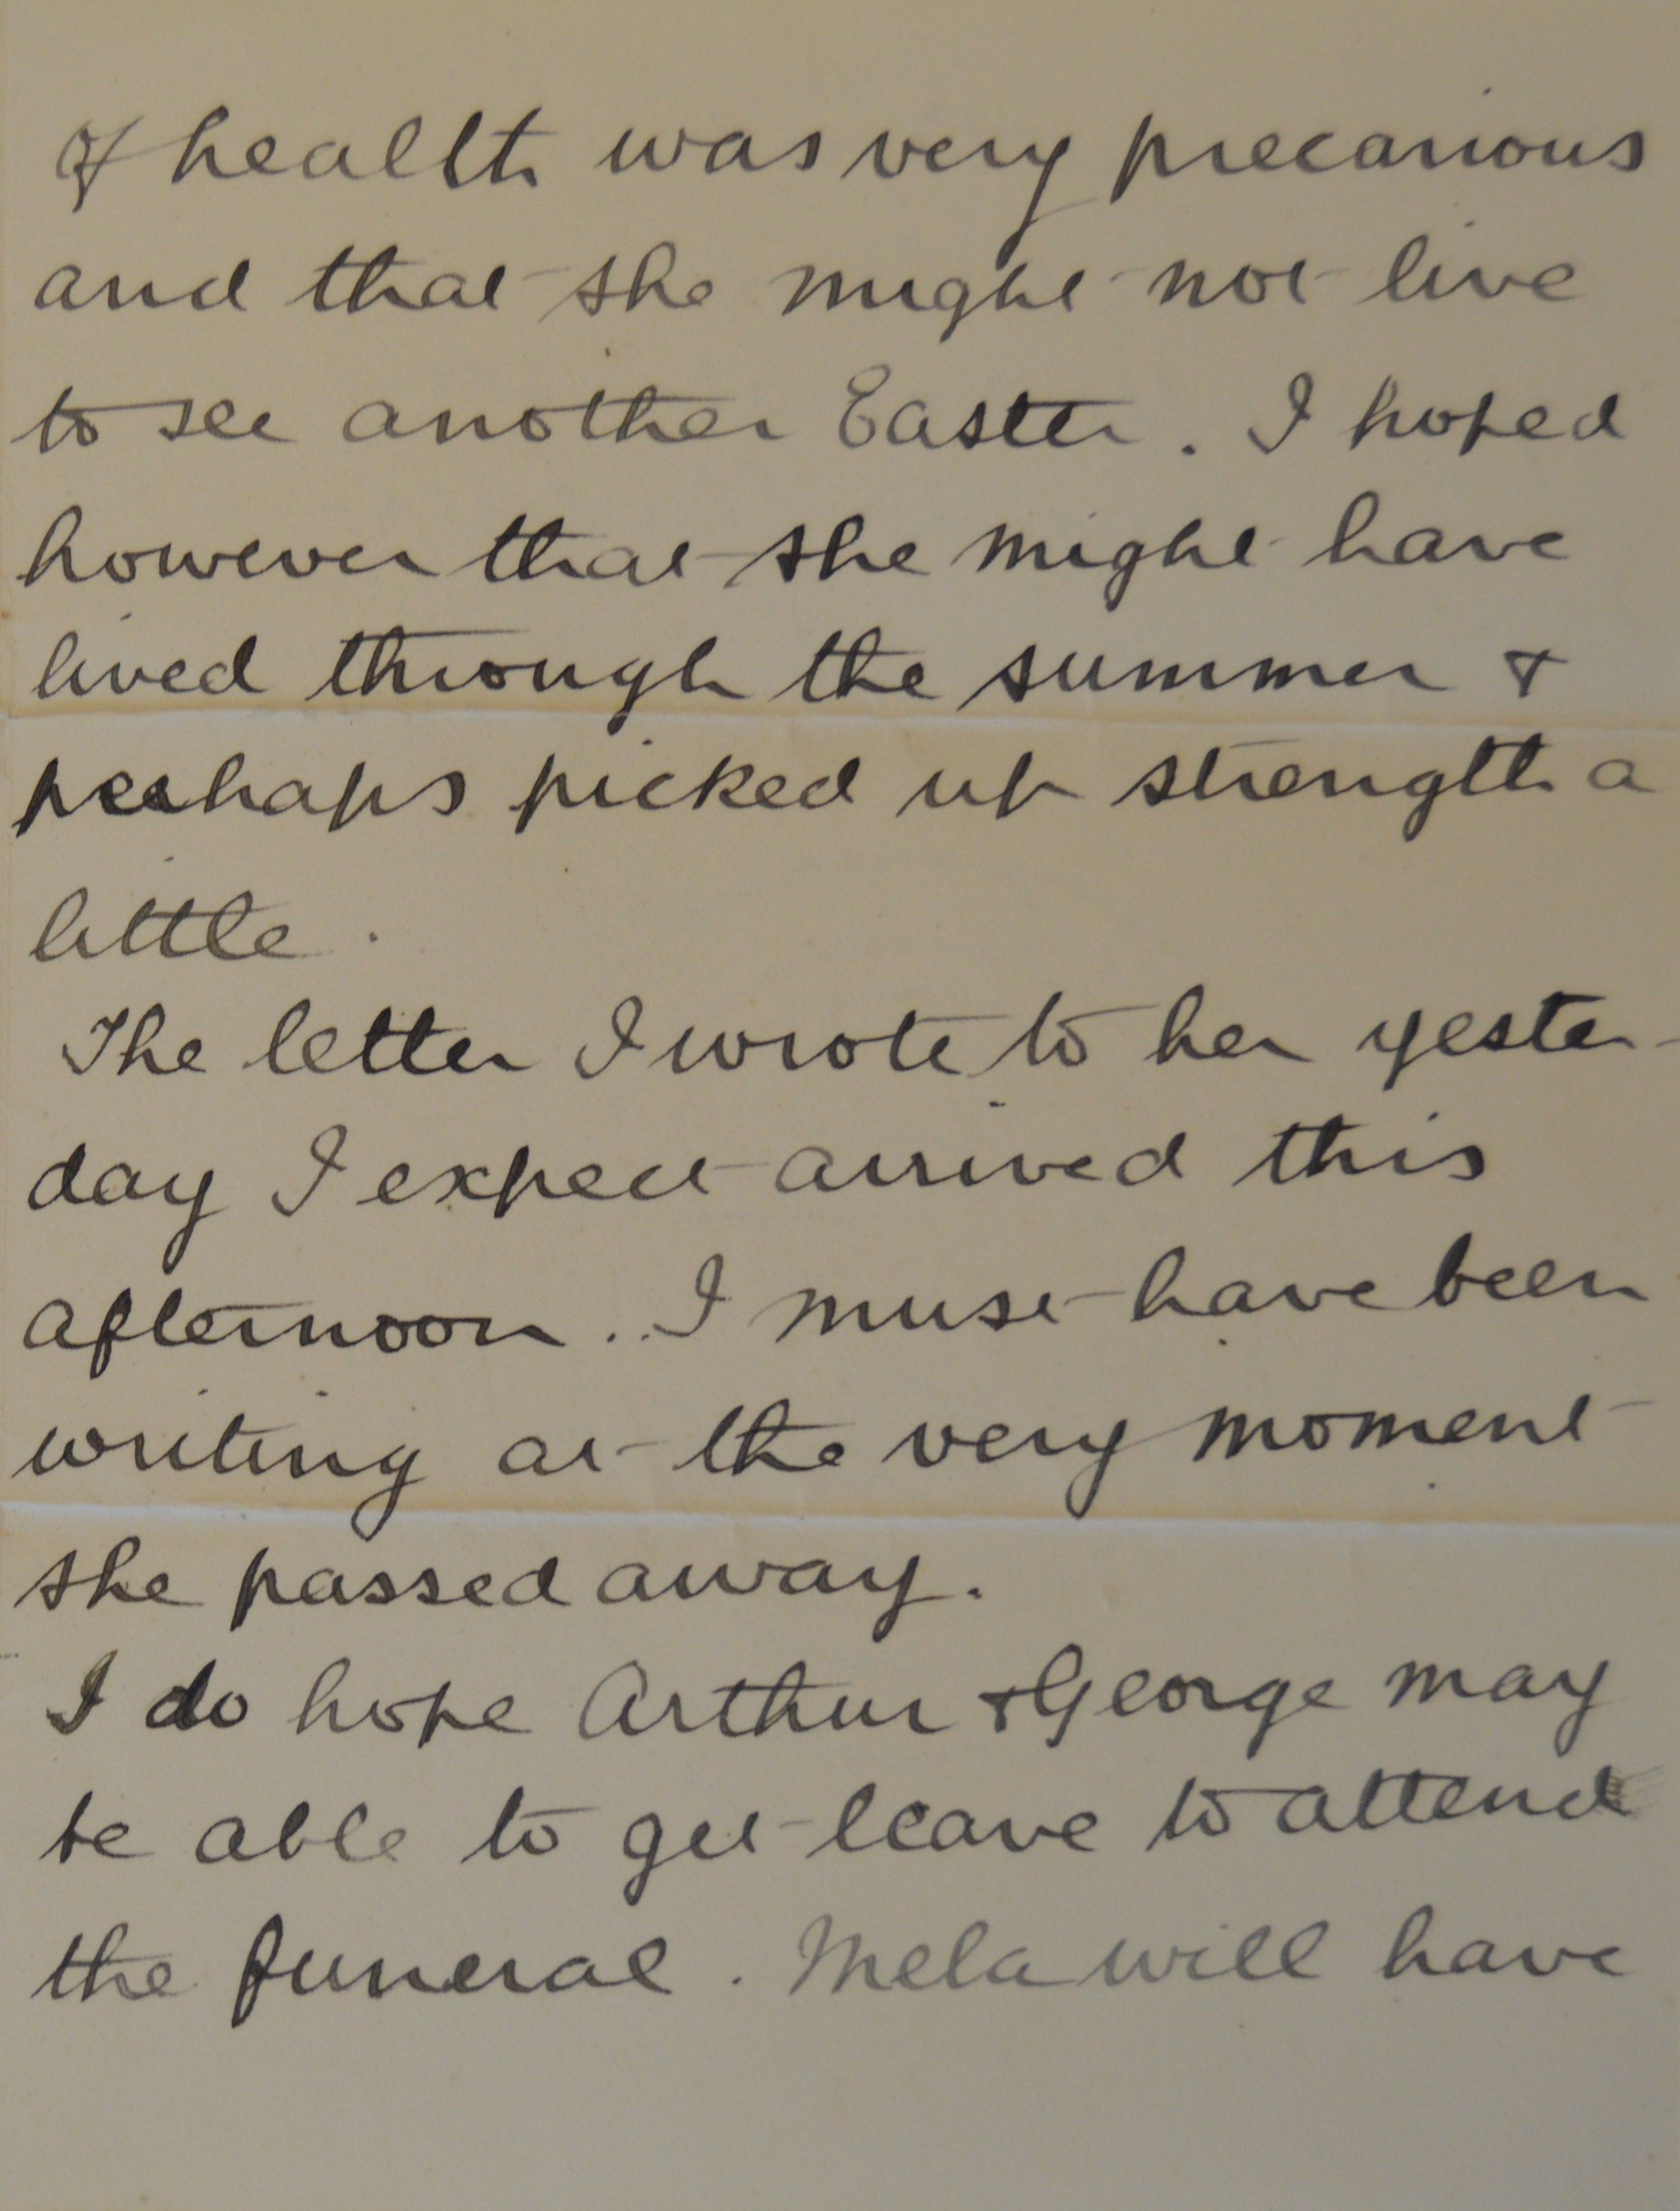 of health was very precarious
and that she might not live
to see another Easter. I hoped
however that she might have
lived through the summer &
perhaps picked up strength a
little.
The letter I wrote to her yester-
day I expect arrived this
afternoon.. I must have been
writing at the very moment
she passed away.
I do hope Arthur & George may
be able to get leave to attend
the funeral. Mela will have